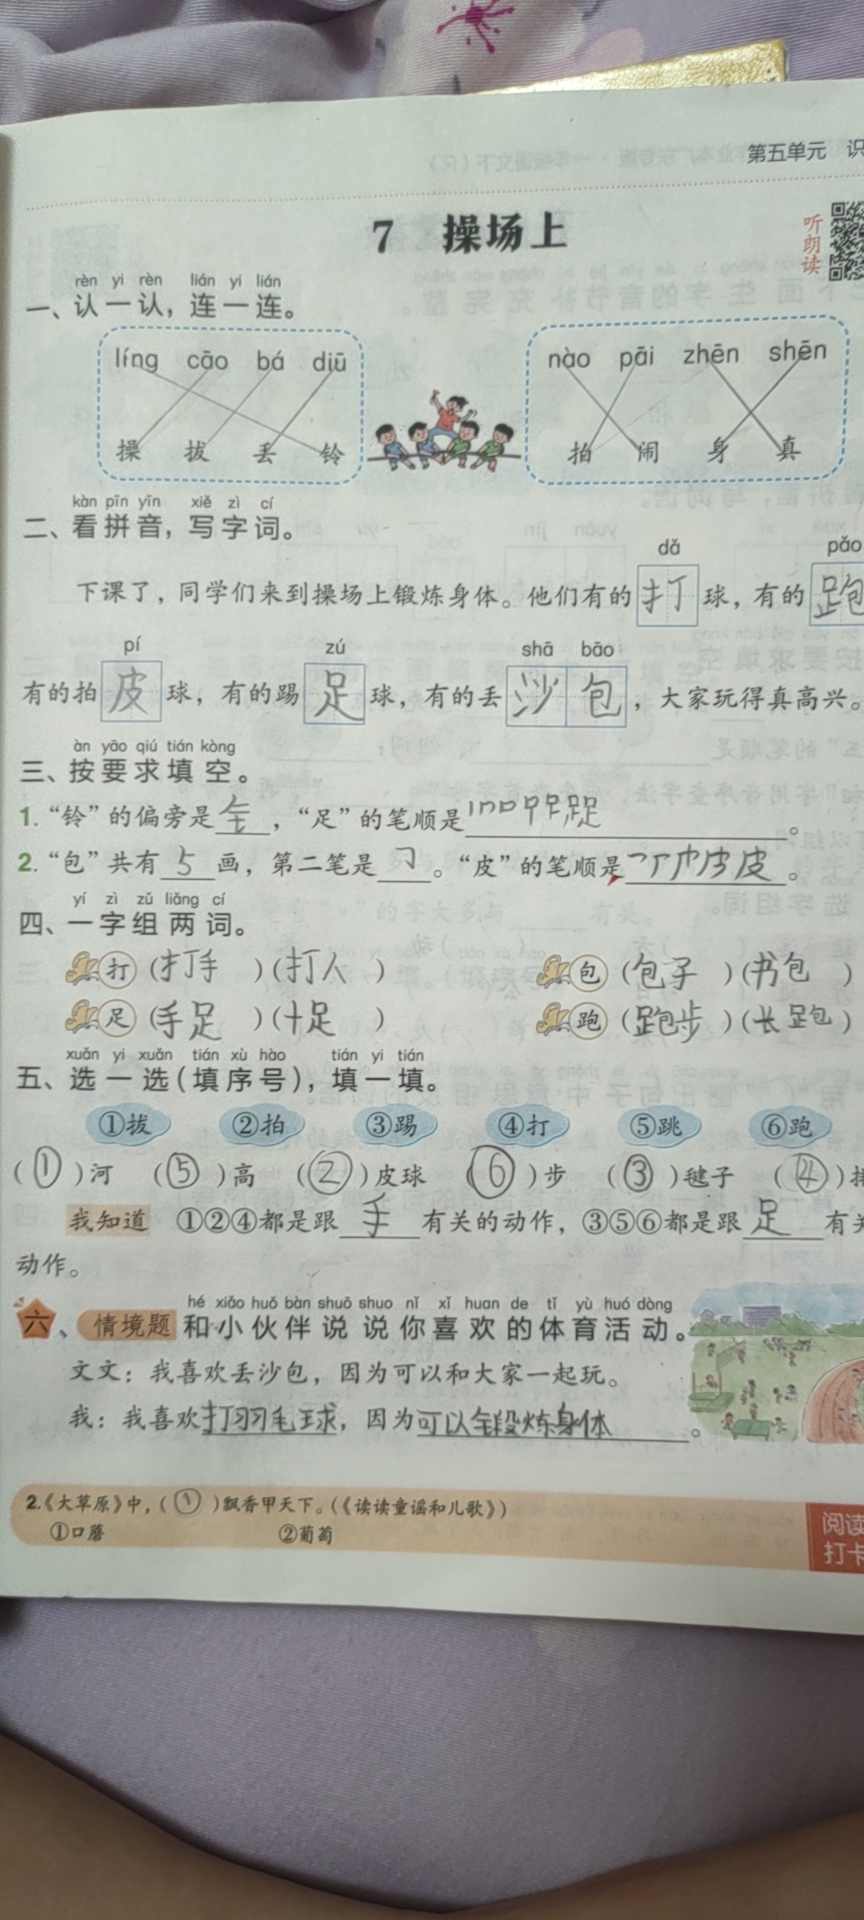 第五单元 识
7 操场上
听朗读
rèn yi rèn lián yi lián
一、认一认，连一连。
líng cāo bá diū nào pāi zhēn shēn
操 拔 丢 铃 拍 闹 身 真
kàn pīn yīn xiě zì cí
二、看拼音，写字词。
dǎ pǎo
下课了，同学们来到操场上锻炼身体。他们有的打球，有的跑
pí zú shā bāo
有的拍皮球，有的踢足球，有的丢沙包，大家玩得真高兴。
àn yāo qiú tián kòng
三、按要求填空。
1.“铃”的偏旁是钅，“足”的笔顺是
2.“包”共有5画，第二笔是㇆。“皮”的笔顺是
yí zì zǔ liǎng cí
四、一字组两词。
打(打手)(打人) 包(包子)(书包)
足(手足)(十足) 跑(跑步)(长跑)
xuǎn yi xuǎn tián xù hào tián yi tián
五、选一选(填序号)，填一填。
①拔 ②拍 ③踢 ④打 ⑤跳 ⑥跑
(①)河 (⑤)高 (②)皮球 (⑥)步 (③)毽子 (④)排
我知道 ①②④都是跟手有关的动作，③⑤⑥都是跟足有关
动作。
hé xiǎo huǒ bàn shuō shuo nǐ xǐ huan de tǐ yù huó dòng
六、情境题 和小伙伴说说你喜欢的体育活动。
文文：我喜欢丢沙包，因为可以和大家一起玩。
我：我喜欢打羽毛球，因为可以锻炼身体。
2.《大草原》中，(①)飘香甲天下。(《读读童谣和儿歌》)
①口蘑 ②葡萄
阅读
打卡